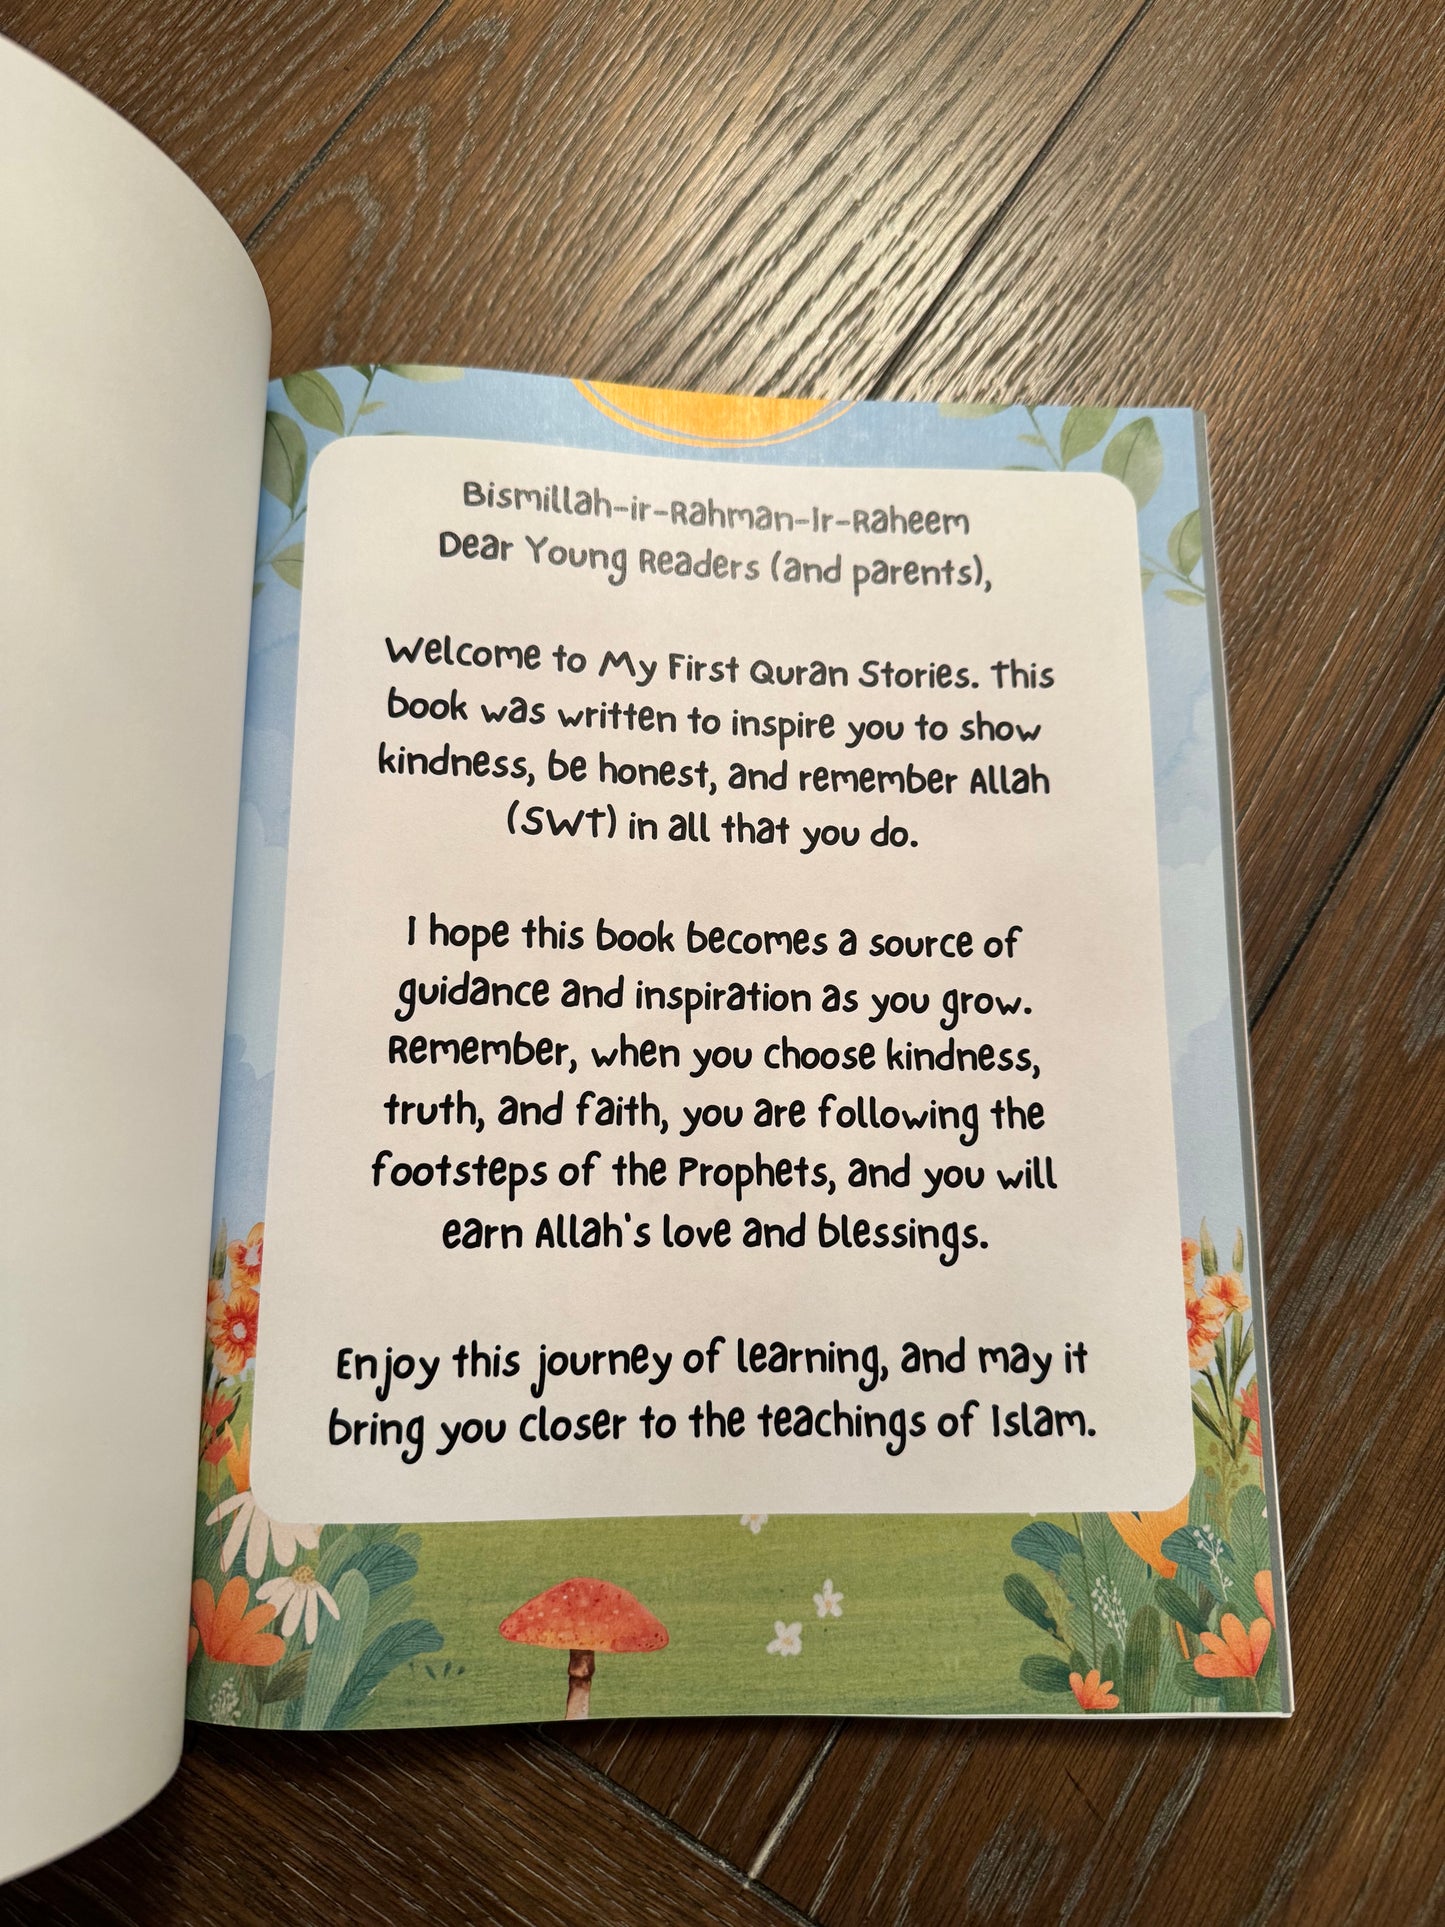 Bismillah-ir-Rahman-Ir-Raheem
Dear Young Readers (and parents),
Welcome to My First Quran Stories. This
book was written to inspire you to show
kindness, be honest, and remember Allah
(SWT) in all that you do.
I hope this book becomes a source of
guidance and inspiration as you grow.
Remember, when you choose kindness,
truth, and faith, you are following the
footsteps of the Prophets, and you will
earn Allah's love and blessings.
Enjoy this journey of learning, and may it
bring you closer to the teachings of Islam.